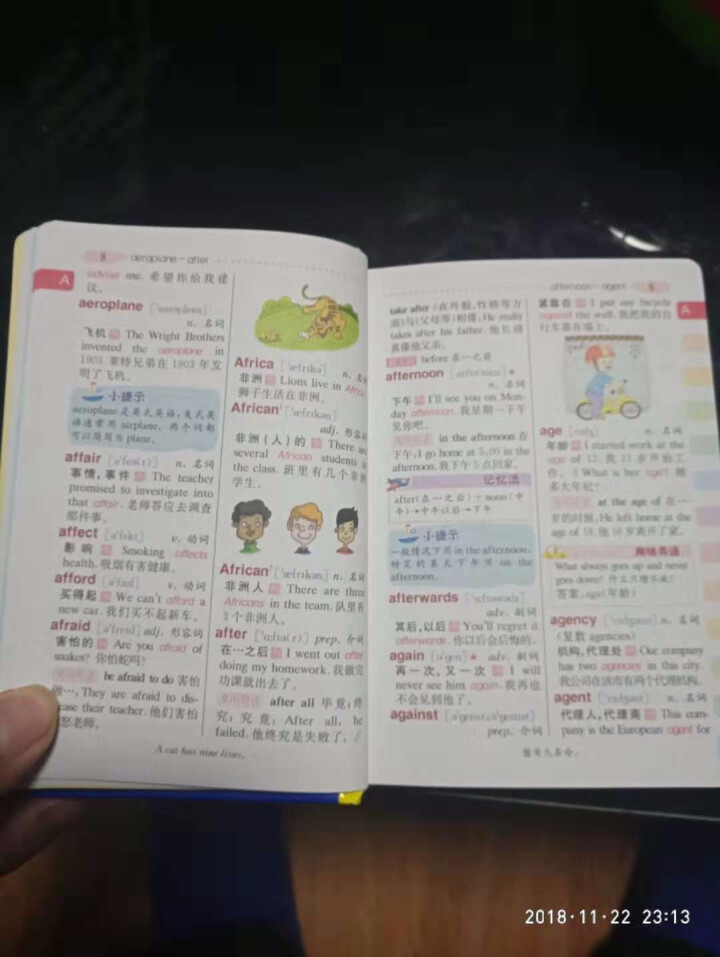 8 aeroplane – after
A
advise me. 希望你给我建
议。
aeroplane
n. 名词
飞机 The Wright Brothers
invented the aeroplane in
1903. 莱特兄弟在 1903 年发
明了飞机。
小提示
aeroplane 是英式英语,美式英
语通常用 airplane。两个词都
可以简写为 plane。
affair [ə'feə(r)] n. 名词
事情,事件 The teacher
promised to investigate into
that affair. 老师答应去调查
那件事。
affect [ə'fekt] v. 动词
影响 Smoking affects
health. 吸烟有害健康。
afford v. 动词
买得起 We can't afford a
new car. 我们买不起新车。
afraid [ə'freɪd] adj. 形容词
害怕的 Are you afraid of
snakes? 你怕蛇吗?
be afraid to do 害怕
…: They are afraid to dis-
ease their teacher. 他们害怕
怒老师。
Africa ['æfrɪkə] n. 名
非洲 Lions live in Africa
狮子生活在非洲。
African¹ ['æfrɪkən]
adj. 形容
非洲(人)的 There are
several African students
the class. 班里有几个非洲
学生。
African² ['æfrɪkən] n. 名
非洲人 There are three
Africans in the team. 队里有
3 个非洲人。
after prep. 介词
在…之后 I went out after
doing my homework. 我做完
功课就出去了。
after all 毕竟;终
究;究竟: After all, he
failed. 他终究是失败了。
A cat has nine lives.
afternoon – agent 9
A
take after (在外貌、性格等方
面)与(父母等)相像: He really
takes after his father. 他长得
真像他父亲。
before 在…之前
afternoon
n. 名词
下午 I'll see you on Mon-
day afternoon. 我星期一下午
见你吧。
in the afternoon 在
下午: I go home at 5:00 in the
afternoon. 我下午 5 点回家。
记忆法
after(在…之后)+noon(中
午)→中午以后→下午
小提示
一般情况下用 in the afternoon,
特定的某天下午用 on the
afternoon。
afterwards
adv. 副词
其后,以后 You'll regret it
afterwards. 你以后会后悔的。
again adv. 副词
再一次,又一次 I will
never see him again. 我再也
不会见到他了。
against
prep. 介词
紧靠在 I put my bicycle
against the wall. 我把我的自
行车靠在墙上。
age n. 名词
年龄 I started work at the
age of 17. 我 17 岁开始工
作。 What is her age? 她
多大年纪?
at the age of 在…
岁的时候: He left home at the
age of 18. 他 18 岁离开了家。
趣味英语
What always goes up and never
goes down? 什么只增不减?
答案: age(年龄)
agency n. 名词
(复数 agencies)
机构,代理处 Our company
has two agencies in this city.
我公司在该市有两个代理机构。
agent n. 名词
代理人,代理商 This com-
pany is the European agent for
猫有九条命。
2018·11·22 23:13